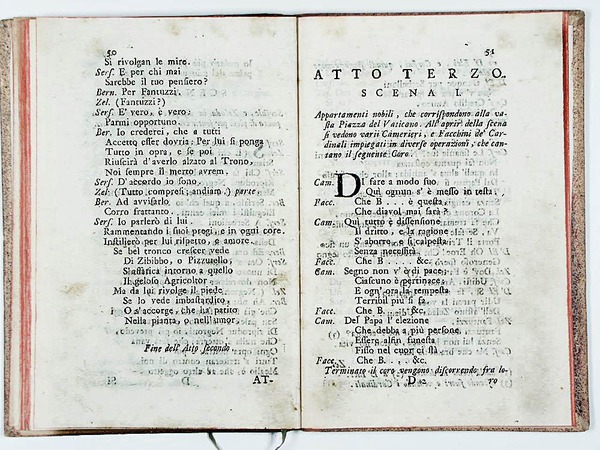 50
Si rivolgan le mire.
Serf. E per chi mai
Sarebbe il tuo pensiero?
Bern. Per Fantuzzi.
Zel. (Fantuzzi?)
Serf. E' vero, è vero:
Parmi opportuno.
Ber. Io crederei, che a tutti
Accetto esser dovria: Per lui si ponga
Tutto in opra, e se poi
Riuscirà d'averlo alzato al Trono,
Noi sempre il merto avrem.
Serf. D'accordo io sono.
Zel: (Tutto compresi, andiam.) parte.
Ber. Ad avvisarlo
Corro frattanto.
Serf. Io parlerò di lui.
Rammentando i suoi pregi, e in ogni core.
Instillerò per lui rispetto, e amore.
Se bel tronco crescer vede
Di Zibibbo, o Pizzutello,
S'affatica intorno a quello
Il geloso Agricoltor
Ma da lui rivolge il piede
Se lo vede imbastardito,
O s'accorge, che ha patito
Nella pianta, o nell'umor.
Fine dell' Atto secondo.
AT-
51
ATTO TERZO.
SCENA I.
Appartamenti nobili, che corrispondono alla va-
sta Piazza del Vaticano. All' aprir della scena
si vedono varii Camerieri, e Facchini de' Car-
dinali impiegati in diverse operazioni, che can-
tano il seguente Coro.
Cam. DI fare a modo suo
Qui ognun s' è messo in testa:
Facc. Che B.... è questa,
Che diavol mai sarà?
Cam. Qui tutto è dissensione
Il dritto, e la ragione
S' aborre, e si calpesta
Senza necessità.
Facc. Che B.... &c.
Cam. Segno non v' è di pace;
Ciascuno è pertinace,
E ogn' ora la tempesta
Terribil più si fa.
Facc. Che B... &c.
Cam. Del Papa l' elezione
Che debba a più persone
Essere alfin funesta
Fisso nel cuor ci stà
Facc. Che B... &c.
Terminato il coro vengono discorrendo fra lo-
D
ro